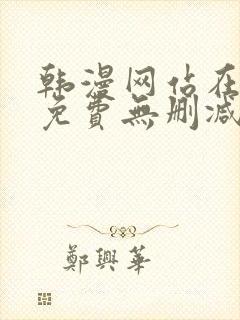 韩漫网站在
免費無删减
鄭興華